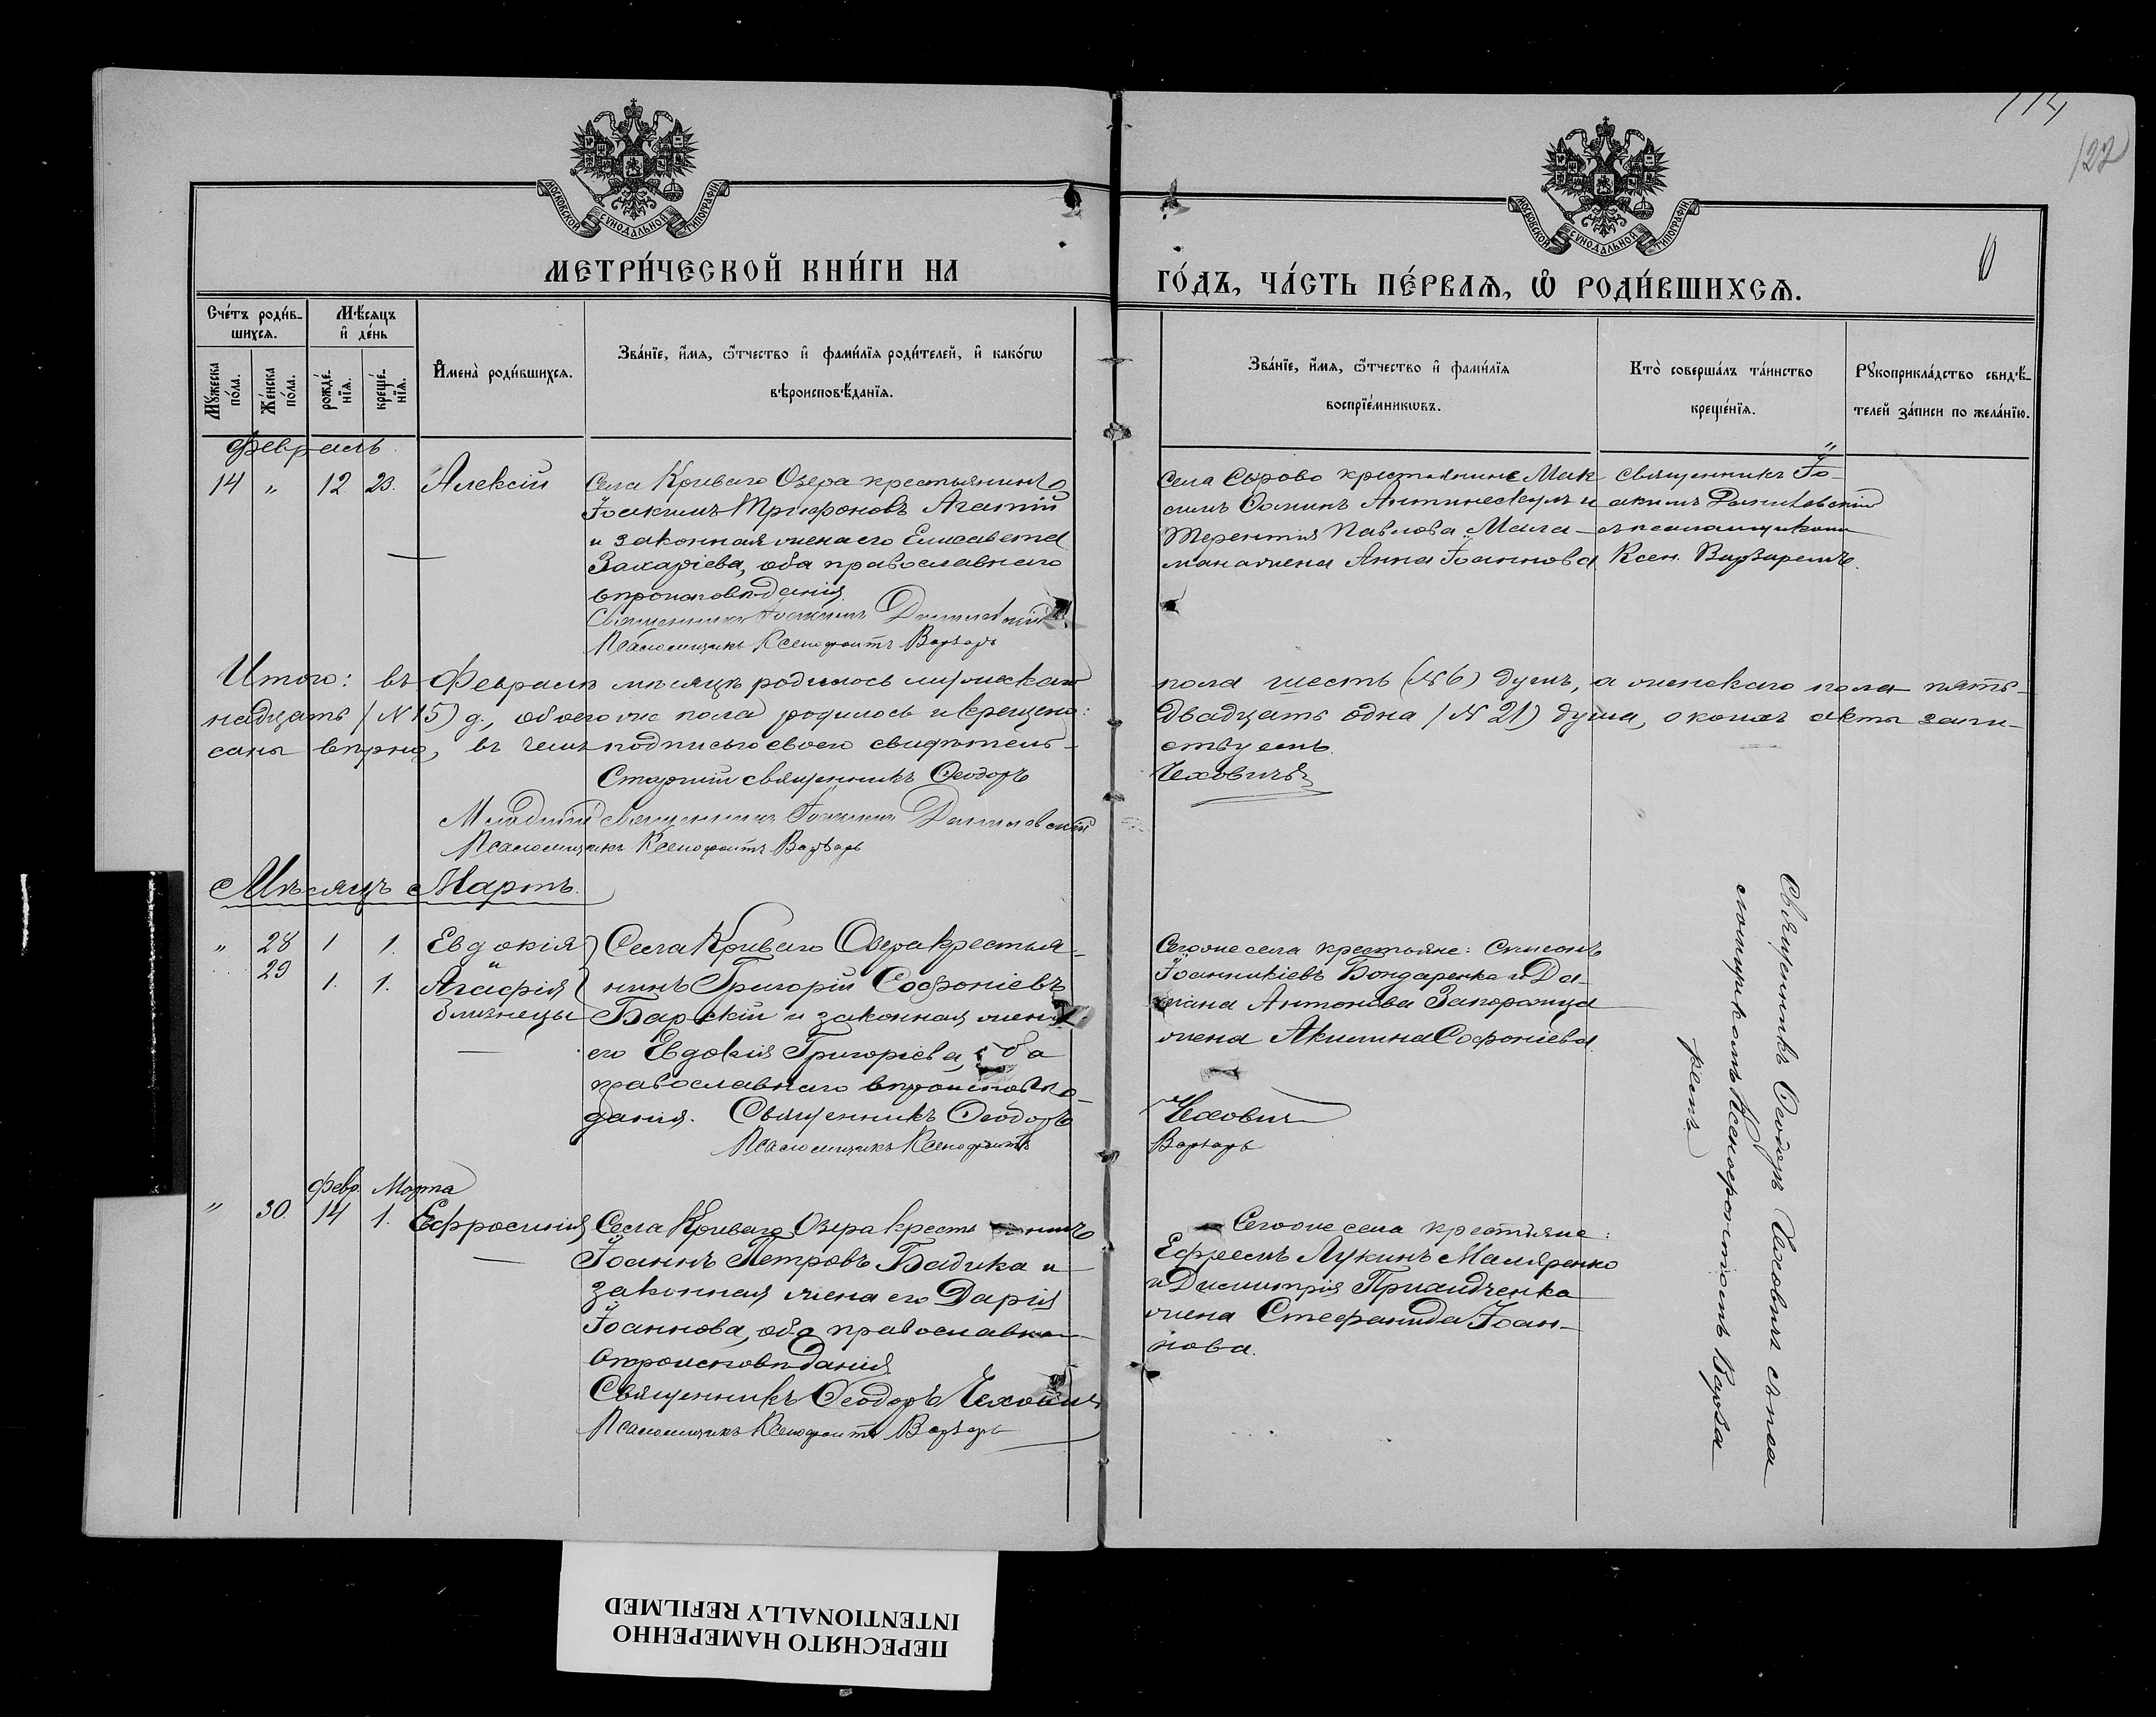 114
122
МОСКОВСКОЙ СУНОДАЛЬНОЙ ТИПОГРАФІИ.
МОСКОВСКОЙ СУНОДАЛЬНОЙ ТИПОГРАФІИ.
МЕТРИ́ЧЕСКОЙ КНИ́ГИ НА
ГО́ДЪ, ЧА́СТЬ ПЕ́РВАѦ, Ѡ҆ РОДИ́ВШИХСѦ.
Сче́тъ роди́в-
шихсѧ.
Мѣ́сѧцъ
и҆ де́нь
Мꙋ́жеска
по́ла.
Же́нска
по́ла.
рожде́-
нїѧ.
креще́-
нїѧ.
И҆мена̀ роди́вшихсѧ.
Зва́нїе, и҆́мѧ, ѻ҆́тчество и҆ фами́лїѧ роди́телей, и҆ како́гѡ
вѣроисповѣ́данїѧ.
Зва́нїе, и҆́мѧ, ѻ҆́тчество и҆ фами́лїѧ
воспрїе́мникѡвъ.
Кто̀ соверша́лъ та́инство
креще́нїѧ.
Рꙋкоприкла́дство свидѣ́-
телей за́писи по жела́нїю.
Февраль
14 " 12 23. Алексій
Села Криваго Озера крестьянинъ
Іоакимъ Трифоновъ Агатій
и законная жена его Елисавета
Захаріева, оба православнаго
вѣроисповѣданія.
Священникъ Іоакимъ Даниловскій
Псаломщикъ Ксенофонтъ Варзаръ
Села Сырово крестьянинъ Мак
симъ Ѳоминъ и
Терентія Павлова Мала-
мана жена Анна Іоаннова
Священникъ Іо-
акимъ Даниловскій
съ псаломщикомъ
Ксен. Варзаремъ.
Итого: въ Февралѣ мѣсяцѣ родилось мужескаго
пола шесть (№ 6) душъ, а женскаго пола пят-
надцать (№ 15) д., обоего же пола родилось и крещено:
двадцать одна (№ 21) душа, о коихъ акты запи-
саны вѣрно, въ чемъ подписью своею свидѣтель-
ствуемъ.
Старшій священникъ Ѳеодоръ
Чеховичъ
Младшій священникъ Іоакимъ Даниловскій
Псаломщикъ Ксенофонтъ Варзаръ
Мѣсяцъ Мартъ.
" 28 1 1. Евдокія
и
29 1. 1. Агафія
близнецы
Села Криваго Озера крестья-
нинъ Григорій Софроніевъ
Барскій и законная жена
его Евдокія Григоріева, оба
православнаго вѣроисповѣ-
данія. Священникъ Ѳеодоръ
Псаломщикъ Ксенофонтъ
Сегоже села крестьяне: Симеонъ
Іоанникіевъ Бондаренко и Да-
Антонова Запорожца
жена Акилина Софоніева.
Чеховичъ
Варзаръ
Священникъ Ѳеодоръ Чеховичъ съ пса
ломщикомъ Ксенофонтомъ Варза
ремъ.
Февр. Марта
" 30. 14 1. Ефросинія
Села Криваго Озера крестьянинъ
Іоаннъ Петровъ Бадика и
законная жена его Дарія
Іоаннова, оба православнаго
вѣроисповѣданія
Священникъ Ѳеодоръ Чеховичъ
Псаломщикъ Ксенофонтъ Варзаръ
Сегоже села крестьяне:
Ефремъ Лукинъ Маляренко
и Димитрія Приходченка
жена Стефанида Іоан-
нова.
ПЕРЕСНЯТО НАМЕРЕННО
INTENTIONALLY REFILMED